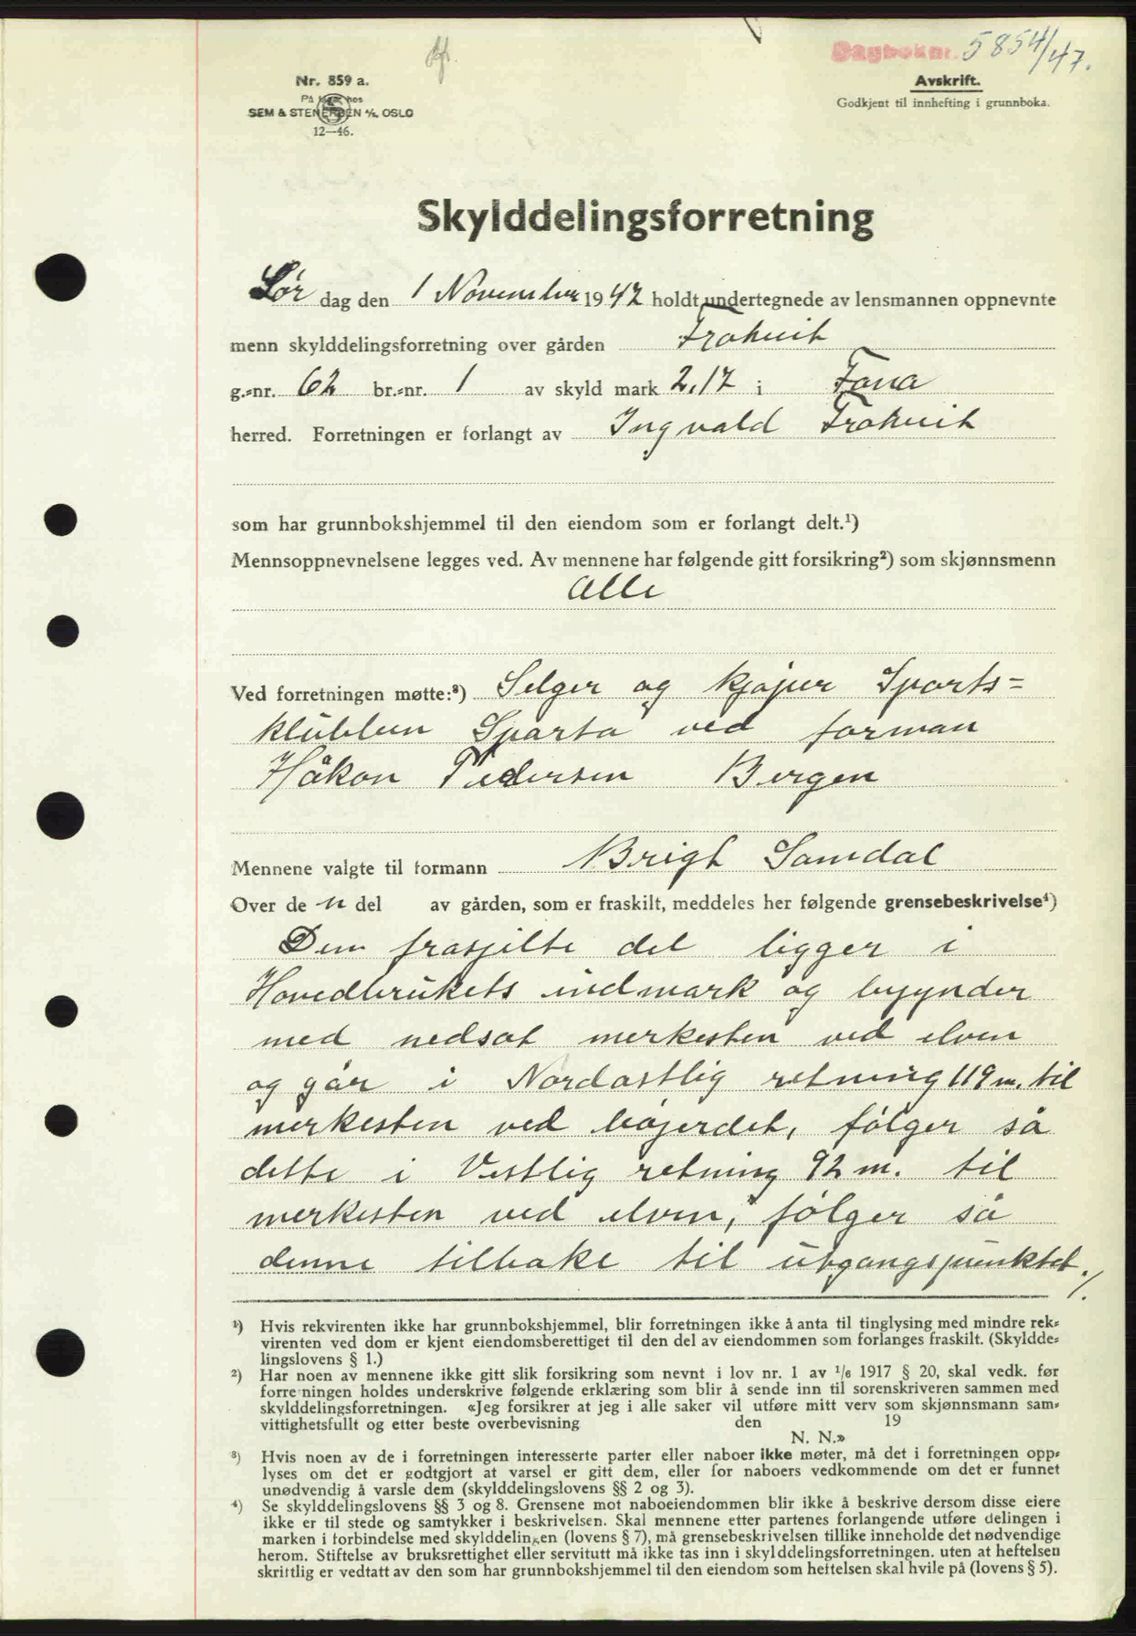 Dagboknr. 5854/47.
Nr. 859 a.
På lager hos
SEM & STENERSEN A/S, OSLO
12—46.
Avskrift.
Godkjent til innhefting i grunnboka.
Skylddelingsforretning
Lør dag den 1 November 1947 holdt undertegnede av lensmannen oppnevnte
menn skylddelingsforretning over gården Frotveit
g.-nr. 62 br.-nr. 1 av skyld mark 2,17 i Fana
herred. Forretningen er forlangt av Ingvald Frotveit
som har grunnbokshjemmel til den eiendom som er forlangt delt.¹)
Mennsoppnevnelsene legges ved. Av mennene har følgende gitt forsikring²) som skjønnsmenn
Alle
Ved forretningen møtte:³) Selger og kjøper Sports=
klubben Sparta ved forman
Håkon Pedersen Bergen
Mennene valgte til formann Brigt Samdal
Over de n del av gården, som er fraskilt, meddeles her følgende grensebeskrivelse⁴)
Den frasjilte del ligger i
Hovedbrukets indmark og begynder
med nedsat merkesten ved elven
og går i Nordøstlig retning 119 m. til
merkesten ved bøjerdet, følger så
dette i Vestlig retning 92 m. til
merkesten ved elven, følger så
denne tilbake til utgangspunktet./.
¹) Hvis rekvirenten ikke har grunnbokshjemmel, blir forretningen ikke å anta til tinglysing med mindre rek-
virenten ved dom er kjent eiendomsberettiget til den del av eiendommen som forlanges fraskilt. (Skyldde-
lingslovens § 1.)
²) Har noen av mennene ikke gitt slik forsikring som nevnt i lov nr. 1 av 1/6 1917 § 20, skal vedk. før
forretningen holdes underskrive følgende erklæring som blir å sende inn til sorenskriveren sammen med
skylddelingsforretningen. «Jeg forsikrer at jeg i alle saker vil utføre mitt verv som skjønnsmann sam-
vittighetsfullt og etter beste overbevisning den 19
N. N.»
³) Hvis noen av de i forretningen interesserte parter eller naboer ikke møter, må det i forretningen opp-
lyses om det er godtgjort at varsel er gitt dem, eller for naboers vedkommende om det er funnet
unødvendig å varsle dem (skylddelingslovens §§ 2 og 3).
⁴) Se skylddelingslovens §§ 3 og 8. Grensene mot naboeiendommen blir ikke å beskrive dersom disse eiere
ikke er til stede og samtykker i beskrivelsen. Skal mennene etter partenes forlangende utføre delingen i
marken i forbindelse med skylddelingen (lovens § 7), må grensebeskrivelsen tillike inneholde det nødvendige
herom. Stiftelse av bruksrettighet eller servitutt må ikke tas inn i skylddelingsforretningen, uten at heftelsen
skriftlig er vedtatt av den som har grunnbokshjemmel til den eiendom som heftelsen skal hvile på (lovens § 5).